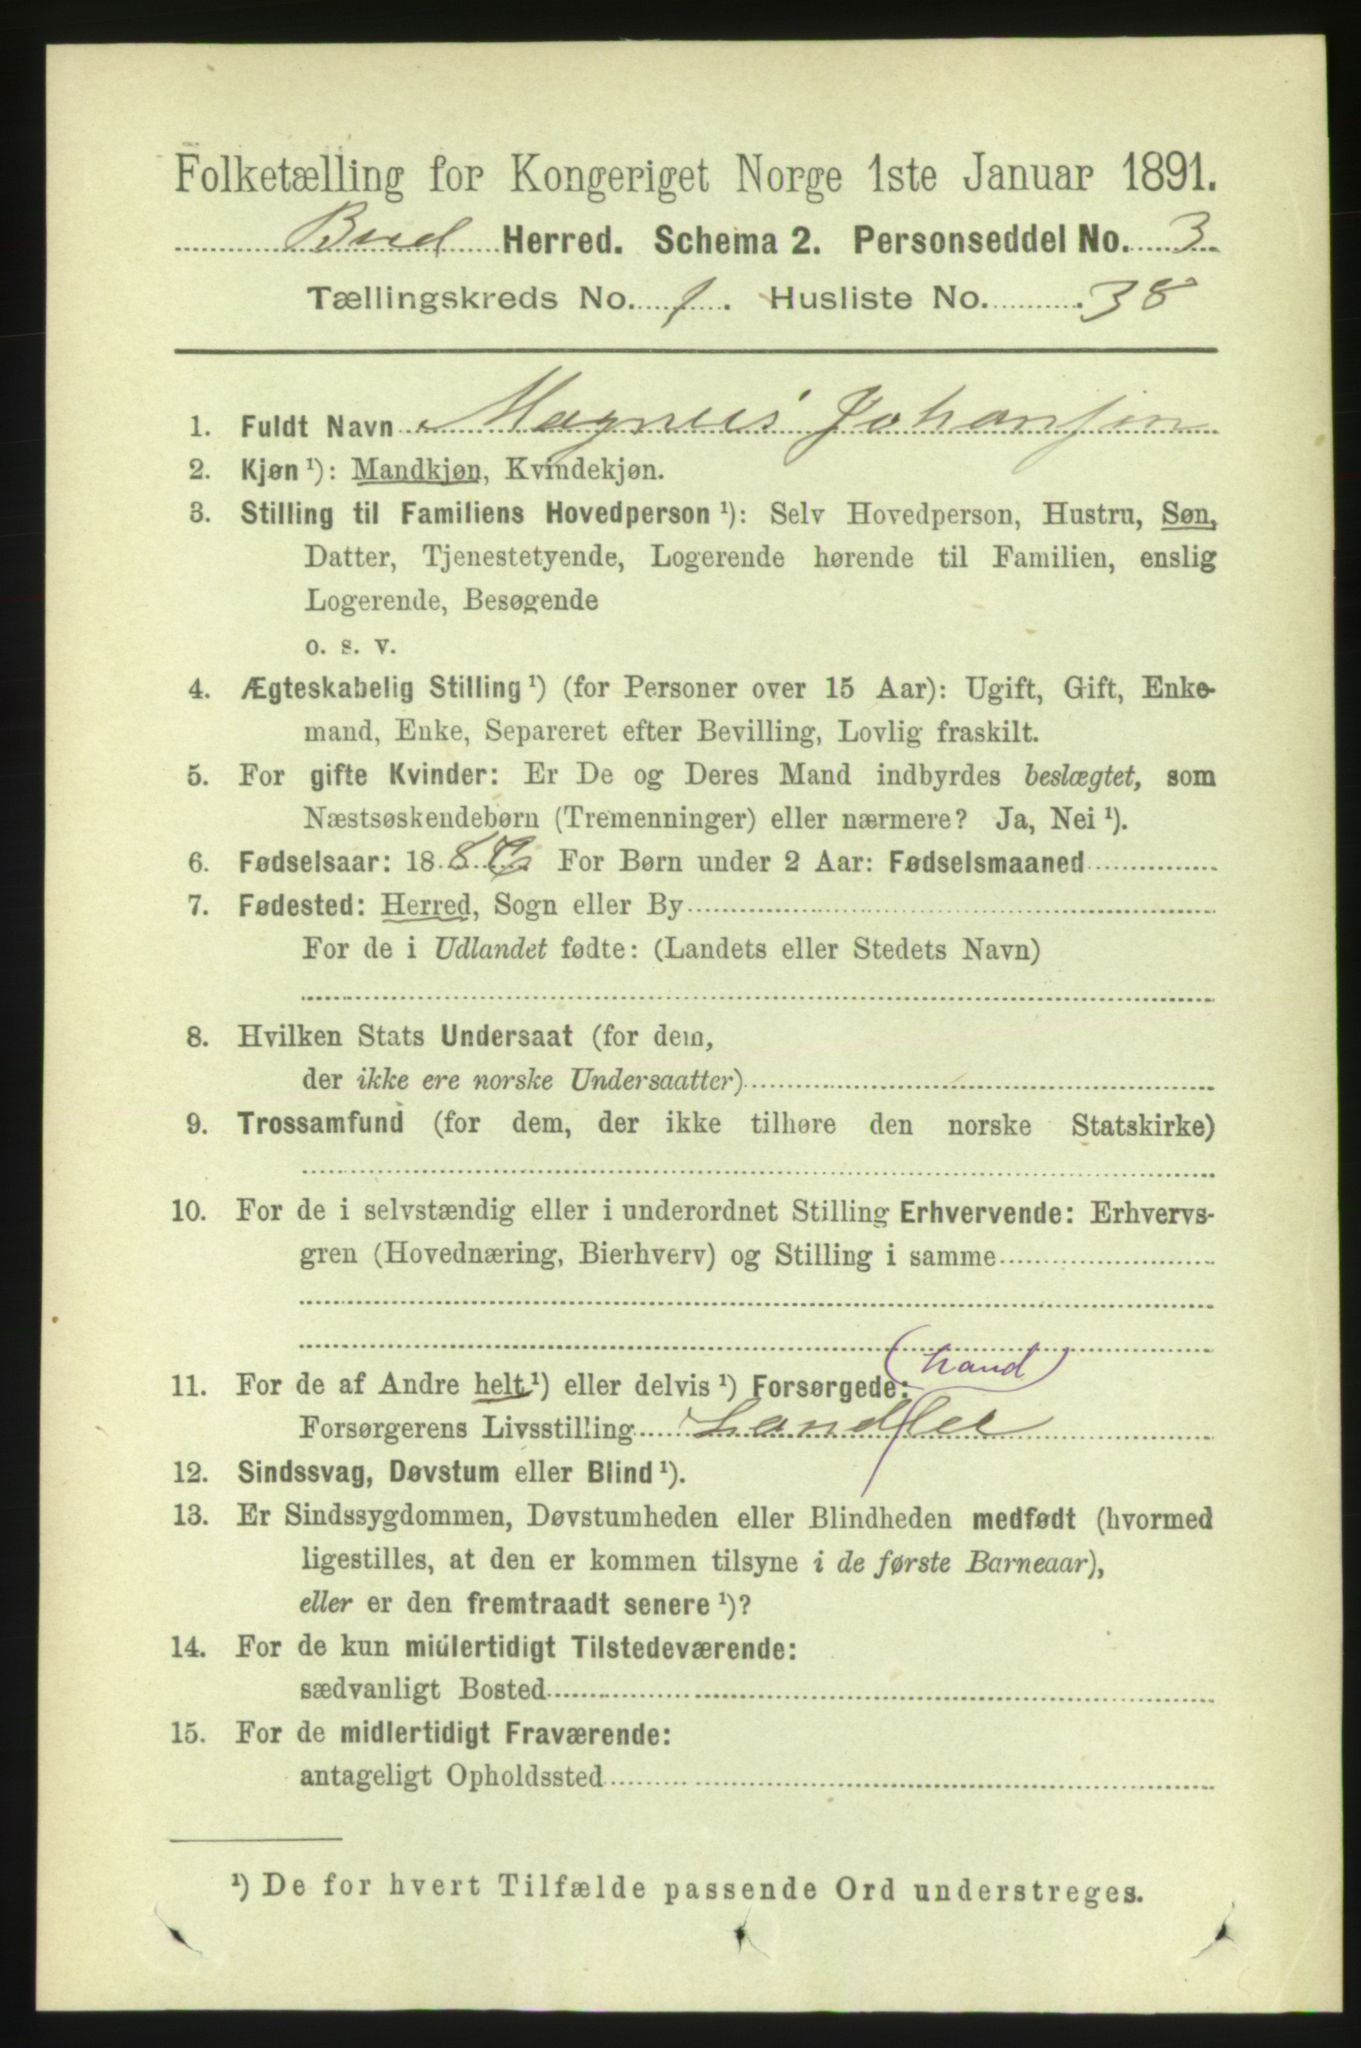 Folketælling for Kongeriget Norge 1ste Januar 1891.
Bud Herred. Schema 2. Personseddel No. 3
Tællingskreds No. 1. Husliste No. 38
1. Fuldt Navn Magnus Johansen
2. Kjøn ¹): Mandkjøn, Kvindekjøn.
3. Stilling til Familiens Hovedperson ¹): Selv Hovedperson, Hustru, Søn,
Datter, Tjenestetyende, Logerende hørende til Familien, enslig
Logerende, Besøgende
o. s. v.
4. Ægteskabelig Stilling ¹) (for Personer over 15 Aar): Ugift, Gift, Enke-
mand, Enke, Separeret efter Bevilling, Lovlig fraskilt.
5. For gifte Kvinder: Er De og Deres Mand indbyrdes beslægtet, som
Næstsøskendebørn (Tremenninger) eller nærmere? Ja, Nei ¹).
6. Fødselsaar: 18 For Børn under 2 Aar: Fødselsmaaned
7. Fødested: Herred, Sogn eller By
For de i Udlandet fødte: (Landets eller Stedets Navn)
8. Hvilken Stats Undersaat (for dem,
der ikke ere norske Undersaatter)
9. Trossamfund (for dem, der ikke tilhøre den norske Statskirke)
10. For de i selvstændig eller i underordnet Stilling Erhvervende: Erhvervs-
gren (Hovednæring, Bierhverv) og Stilling i samme
11. For de af Andre helt ¹) eller delvis ¹) Forsørgede:
Forsørgerens Livsstilling
12. Sindssvag, Døvstum eller Blind ¹).
13. Er Sindssygdommen, Døvstumheden eller Blindheden medfødt (hvormed
ligestilles, at den er kommen tilsyne i de første Barneaar),
eller er den fremtraadt senere ¹)?
14. For de kun midlertidigt Tilstedeværende:
sædvanligt Bosted
15. For de midlertidigt Fraværende:
antageligt Opholdssted
¹) De for hvert Tilfælde passende Ord understreges.